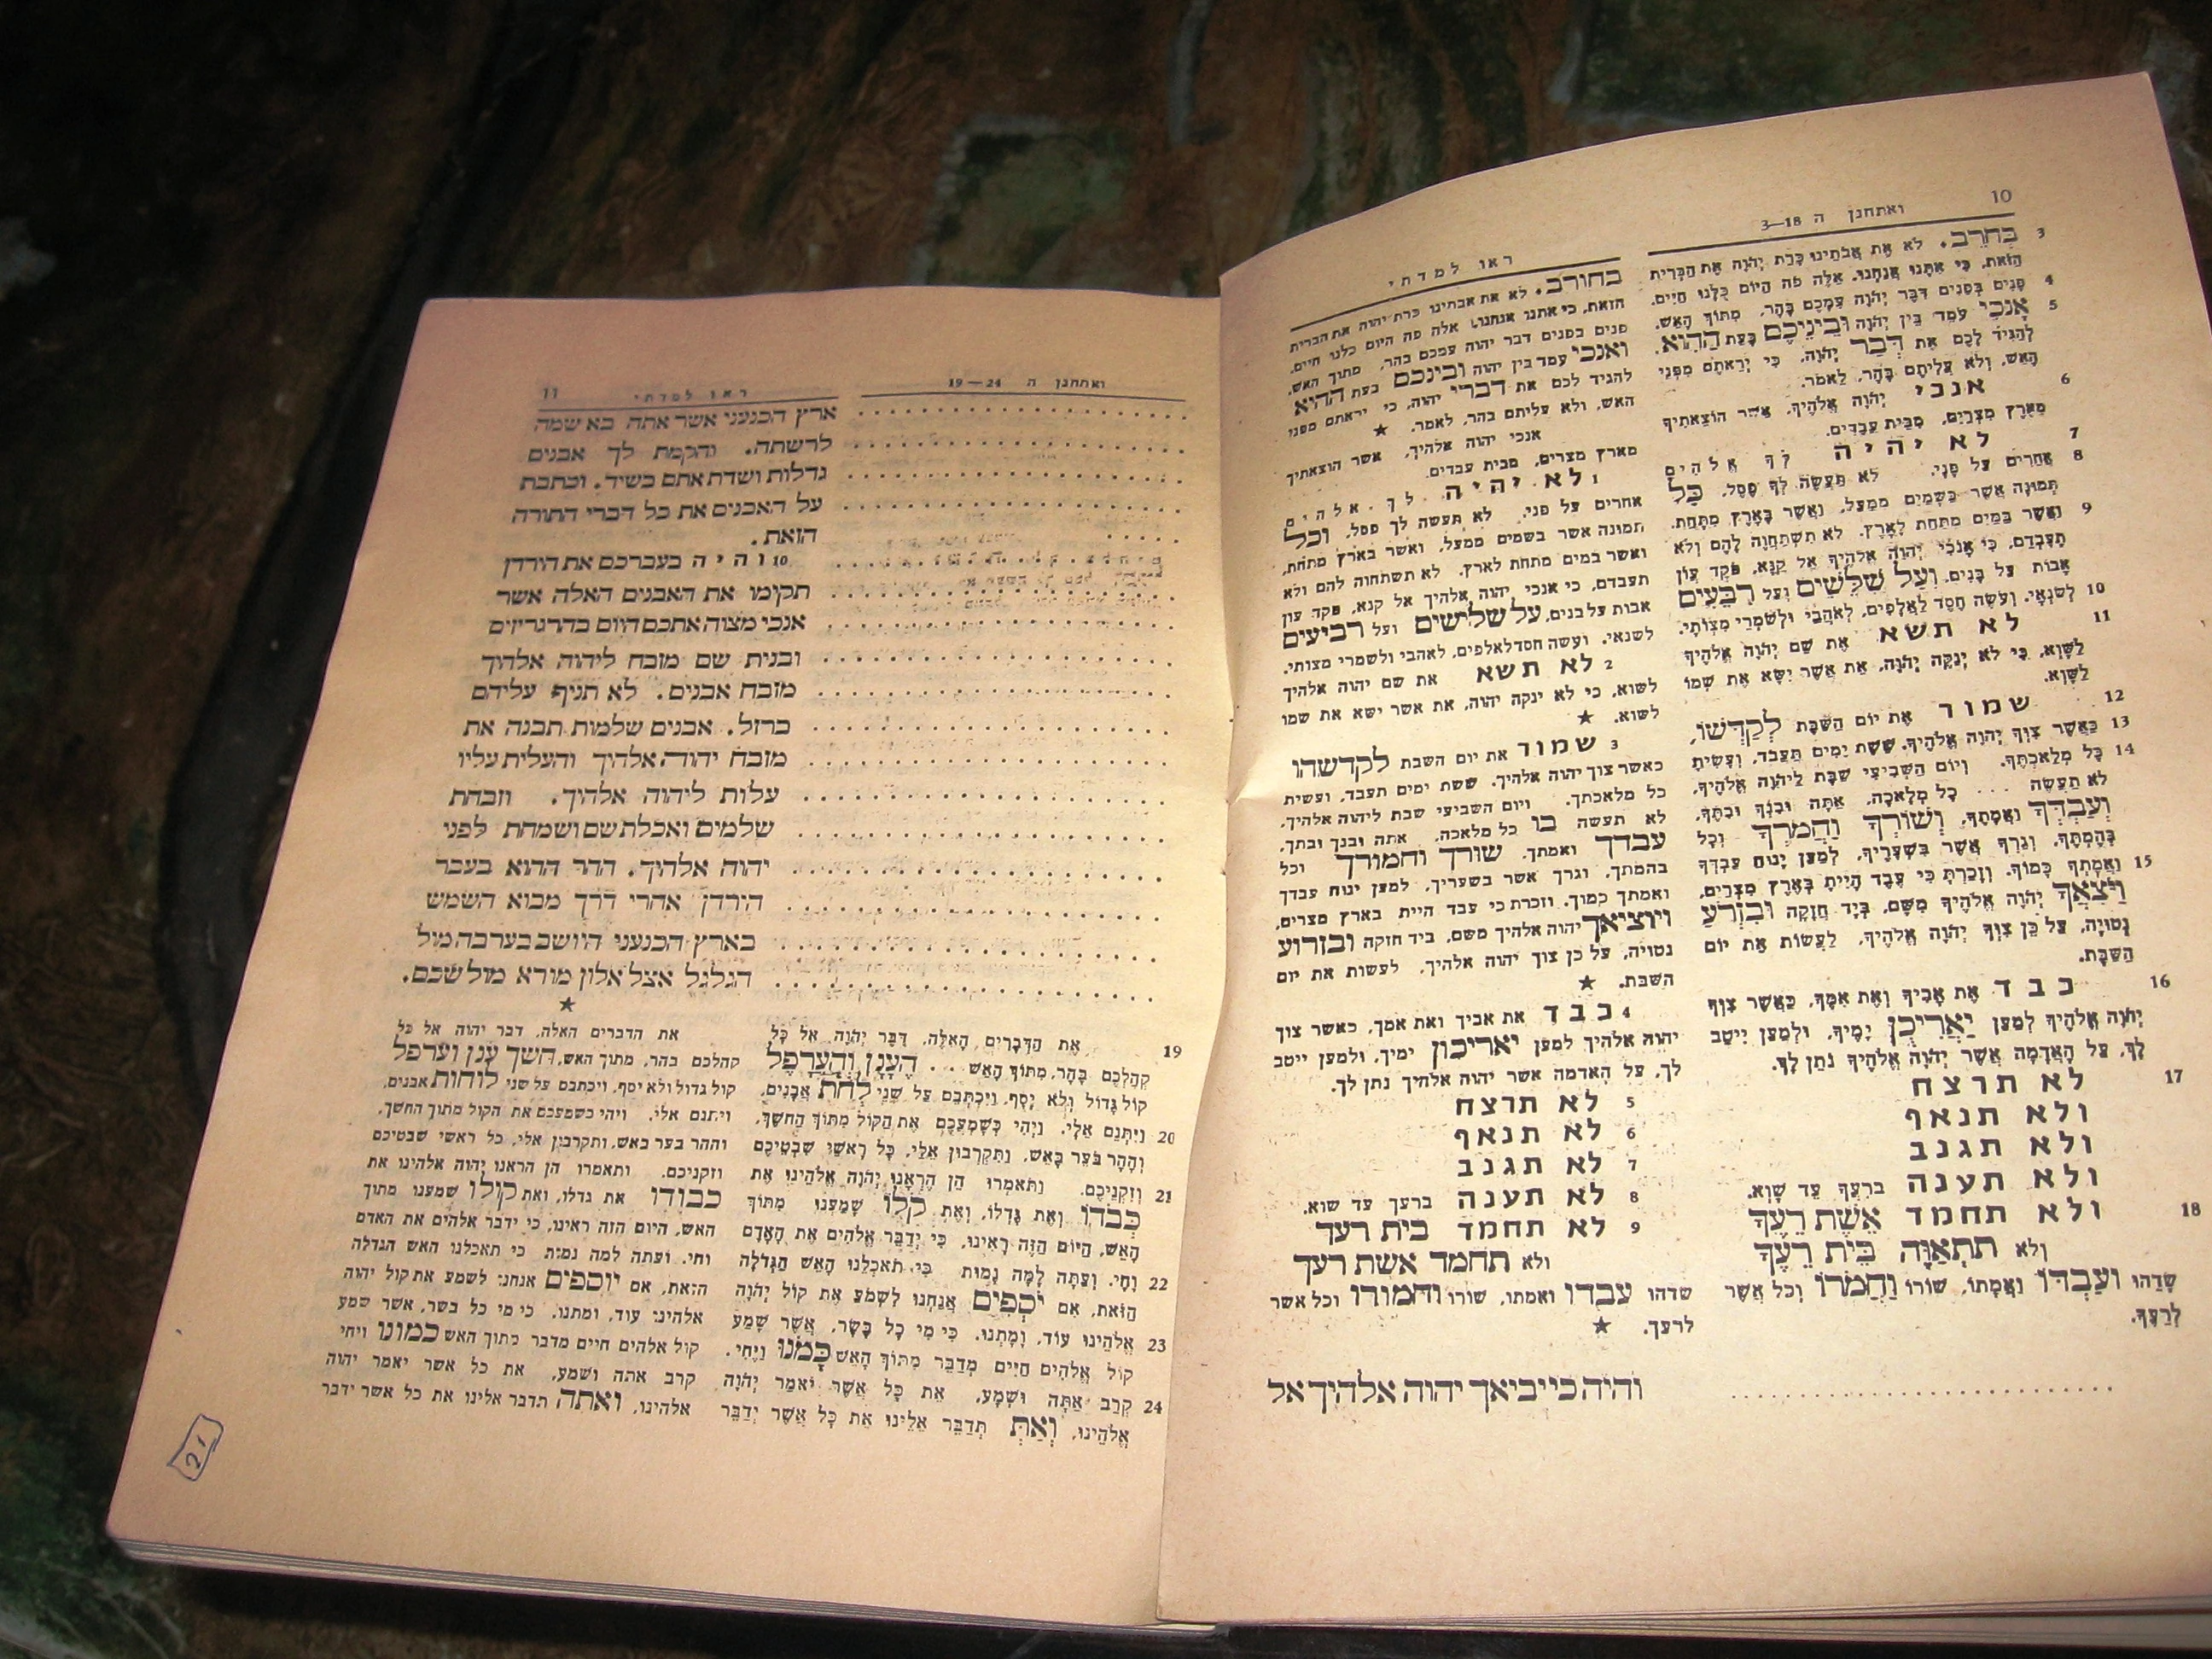 10
ואתחנן ה 3—18
3 בְּחֹרֵב. לֹא אֶת אֲבֹתֵינוּ כָּרַת יְהֹוָה אֶת הַבְּרִית
הַזֹּאת, כִּי אִתָּנוּ אֲנַחְנוּ, אֵלֶּה פֹה הַיּוֹם כֻּלָּנוּ חַיִּים.
4 פָּנִים בְּפָנִים דִּבֶּר יְהֹוָה עִמָּכֶם בָּהָר, מִתּוֹךְ הָאֵשׁ.
5 אָנֹכִי עֹמֵד בֵּין יְהֹוָה וּבֵינֵיכֶם בָּעֵת הַהִוא,
לְהַגִּיד לָכֶם אֶת דְּבַר יְהֹוָה, כִּי יְרֵאתֶם מִפְּנֵי
הָאֵשׁ, וְלֹא עֲלִיתֶם בָּהָר, לֵאמֹר.
6 אנכי יְהֹוָה אֱלֹהֶיךָ, אֲשֶׁר הוֹצֵאתִיךָ
מֵאֶרֶץ מִצְרַיִם, מִבֵּית עֲבָדִים.
7 לא יהיה לְךָ אֱלֹהִים
8 אֲחֵרִים עַל פָּנָי. לֹא תַעֲשֶׂה לְךָ פֶסֶל, כָּל
תְּמוּנָה אֲשֶׁר בַּשָּׁמַיִם מִמַּעַל, וַאֲשֶׁר בָּאָרֶץ מִתָּחַת,
9 וַאֲשֶׁר בַּמַּיִם מִתַּחַת לָאָרֶץ. לֹא תִשְׁתַּחֲוֶה לָהֶם וְלֹא
תָעָבְדֵם, כִּי אָנֹכִי יְהֹוָה אֱלֹהֶיךָ אֵל קַנָּא, פֹּקֵד עֲוֹן
אָבוֹת עַל בָּנִים, וְעַל שִׁלֵּשִׁים וְעַל רִבֵּעִים
10 לְשֹׂנְאָי. וְעֹשֶׂה חֶסֶד לַאֲלָפִים, לְאֹהֲבַי וּלְשֹׁמְרֵי מִצְוֹתָי.
11 לא תשא אֶת שֵׁם יְהֹוָה אֱלֹהֶיךָ
לַשָּׁוְא, כִּי לֹא יְנַקֶּה יְהֹוָה, אֵת אֲשֶׁר יִשָּׂא אֶת שְׁמוֹ
לַשָּׁוְא.
12 שמור אֶת יוֹם הַשַּׁבָּת לְקַדְּשׁוֹ,
13 כַּאֲשֶׁר צִוְּךָ יְהֹוָה אֱלֹהֶיךָ. שֵׁשֶׁת יָמִים תַּעֲבֹד, וְעָשִׂיתָ
14 כָּל מְלַאכְתֶּךָ. וְיוֹם הַשְּׁבִיעִי שַׁבָּת לַיהֹוָה אֱלֹהֶיךָ,
לֹא תַעֲשֶׂה ... כָל מְלָאכָה, אַתָּה וּבִנְךָ וּבִתֶּךָ,
וְעַבְדְּךָ וַאֲמָתֶךָ, וְשׁוֹרְךָ וַחֲמֹרְךָ וְכָל
בְּהֶמְתֶּךָ, וְגֵרְךָ אֲשֶׁר בִּשְׁעָרֶיךָ, לְמַעַן יָנוּחַ עַבְדְּךָ
15 וַאֲמָתְךָ כָּמוֹךָ. וְזָכַרְתָּ כִּי עֶבֶד הָיִיתָ בְּאֶרֶץ מִצְרַיִם,
וַיֹּצִאֲךָ יְהֹוָה אֱלֹהֶיךָ מִשָּׁם, בְּיָד חֲזָקָה וּבִזְרֹעַ
נְטוּיָה, עַל כֵּן צִוְּךָ יְהֹוָה אֱלֹהֶיךָ, לַעֲשׂוֹת אֶת יוֹם
הַשַּׁבָּת.
16 כבד אֶת אָבִיךָ וְאֶת אִמֶּךָ, כַּאֲשֶׁר צִוְּךָ
יְהֹוָה אֱלֹהֶיךָ לְמַעַן יַאֲרִיכֻן יָמֶיךָ, וּלְמַעַן יִיטַב
לָךְ, עַל הָאֲדָמָה אֲשֶׁר יְהֹוָה אֱלֹהֶיךָ נֹתֵן לָךְ.
17 לא תרצח
ולא תנאף
ולא תגנב
ולא תענה בְרֵעֲךָ עֵד שָׁוְא.
18 ולא תחמד אֵשֶׁת רֵעֶךָ
וְלֹא תִתְאַוֶּה בֵּית רֵעֶךָ
שָׂדֵהוּ וְעַבְדּוֹ וַאֲמָתוֹ, שׁוֹרוֹ וַחֲמֹרוֹ וְכֹל אֲשֶׁר
לְרֵעֶךָ.
ראו למדתי
בחורב. לא את אבתינו כרת יהוה את הברית
הזאת, כי אתנו אנחנו, אלה פה היום כלנו חיים.
פנים בפנים דבר יהוה עמכם בהר, מתוך האש.
ואנכי עמד בין יהוה ובינכם בעת ההוא
להגיד לכם את דברי יהוה, כי יראתם מפני
האש, ולא עליתם בהר, לאמר. ★
אנכי יהוה אלהיך, אשר הוצאתיך
מארץ מצרים, מבית עבדים.
1 לא יהיה לך אלהים
אחרים על פני. לא תעשה לך פסל, וכל
תמונה אשר בשמים ממעל, ואשר בארץ מתחת,
ואשר במים מתחת לארץ. לא תשתחוה להם ולא
תעבדם, כי אנכי יהוה אלהיך אל קנא, פקד עון
אבות על בנים, על שלישים ועל רביעים
לשנאי. ועשה חסד לאלפים, לאהבי ולשמרי מצותי.
2 לא תשא את שם יהוה אלהיך
לשוא, כי לא ינקה יהוה, את אשר ישא את שמו
לשוא. ★
3 שמור את יום השבת לקדשהו
כאשר צוך יהוה אלהיך. ששת ימים תעבד, ועשית
כל מלאכתך. ויום השביעי שבת ליהוה אלהיך,
לא תעשה בו כל מלאכה, אתה ובנך ובתך,
עבדך ואמתך, שורך וחמורך וכל
בהמתך, וגרך אשר בשעריך, למען ינוח עבדך
ואמתך כמוך. וזכרת כי עבד היית בארץ מצרים,
ויוציאך יהוה אלהיך משם, ביד חזקה ובזרוע
נטויה, על כן צוך יהוה אלהיך, לעשות את יום
השבת. ★
4 כבד את אביך ואת אמך, כאשר צוך
יהוה אלהיך למען יאריכון ימיך, ולמען ייטב
לך, על האדמה אשר יהוה אלהיך נתן לך.
5 לא תרצח
6 לא תנאף
7 לא תגנב
8 לא תענה ברעך עד שוא.
9 לא תחמד בית רעך
ולא תחמד אשת רעך
שדהו עבדו ואמתו, שורו וחמורו וכל אשר
לרעך. ★
והיה כי יביאך יהוה אלהיך אל
ואתחנן ה 19—24
ראו למדתי
11
ארץ הכנעני אשר אתה בא שמה
לרשתה. והקמת לך אבנים
גדלות ושדת אתם בשיד. וכתבת
על האבנים את כל דברי התורה
הזאת.
10 והיה בעברכם את הירדן
תקימו את האבנים האלה אשר
אנכי מצוה אתכם היום בהרגריזים
ובנית שם מזבח ליהוה אלהיך
מזבח אבנים. לא תניף עליהם
ברזל. אבנים שלמות תבנה את
מזבח יהוה אלהיך והעלית עליו
עלות ליהוה אלהיך. וזבחת
שלמים ואכלת שם ושמחת לפני
יהוה אלהיך. ההר ההוא בעבר
הירדן אחרי דרך מבוא השמש
בארץ הכנעני היושב בערבה מול
הגלגל אצל אלון מורא מול שכם.
★
19 אֶת הַדְּבָרִים הָאֵלֶּה, דִּבֶּר יְהֹוָה אֶל כָּל
קְהַלְכֶם בָּהָר, מִתּוֹךְ הָאֵשׁ ... הֶעָנָן וְהָעֲרָפֶל
קוֹל גָּדוֹל וְלֹא יָסָף, וַיִּכְתְּבֵם עַל שְׁנֵי לֻחֹת אֲבָנִים,
20 וַיִּתְּנֵם אֵלָי. וַיְהִי כְּשָׁמְעֲכֶם אֶת הַקּוֹל מִתּוֹךְ הַחֹשֶׁךְ,
וְהָהָר בֹּעֵר בָּאֵשׁ, וַתִּקְרְבוּן אֵלַי, כָּל רָאשֵׁי שִׁבְטֵיכֶם
21 וְזִקְנֵיכֶם. וַתֹּאמְרוּ הֵן הֶרְאָנוּ יְהֹוָה אֱלֹהֵינוּ אֶת
כְּבֹדוֹ וְאֶת גָּדְלוֹ, וְאֶת קֹלוֹ שָׁמַעְנוּ מִתּוֹךְ
הָאֵשׁ, הַיּוֹם הַזֶּה רָאִינוּ, כִּי יְדַבֵּר אֱלֹהִים אֶת הָאָדָם
22 וָחָי. וְעַתָּה לָמָּה נָמוּת כִּי תֹאכְלֵנוּ הָאֵשׁ הַגְּדֹלָה
הַזֹּאת, אִם יֹסְפִים אֲנַחְנוּ לִשְׁמֹעַ אֶת קוֹל יְהֹוָה
23 אֱלֹהֵינוּ עוֹד, וָמָתְנוּ. כִּי מִי כָל בָּשָׂר, אֲשֶׁר שָׁמַע
קוֹל אֱלֹהִים חַיִּים מְדַבֵּר מִתּוֹךְ הָאֵשׁ כָּמֹנוּ וַיֶּחִי.
24 קְרַב אַתָּה וּשְׁמָע, אֵת כָּל אֲשֶׁר יֹאמַר יְהֹוָה
אֱלֹהֵינוּ, וְאַתְּ תְּדַבֵּר אֵלֵינוּ אֵת כָּל אֲשֶׁר יְדַבֵּר
את הדברים האלה, דבר יהוה אל כל
קהלכם בהר, מתוך האש, חשך ענן וערפל
קול גדול ולא יסף, ויכתבם על שני לוחות אבנים,
ויתנם אלי. ויהי כשמעכם את הקול מתוך החשך,
וההר בער באש, ותקרבון אלי, כל ראשי שבטיכם
וזקניכם. ותאמרו הן הראנו יהוה אלהינו את
כבודו את גדלו, ואת קולו שמענו מתוך
האש, היום הזה ראינו, כי ידבר אלהים את האדם
וחי. ועתה למה נמות כי תאכלנו האש הגדלה
הזאת, אם יוספים אנחנו לשמע את קול יהוה
אלהינו עוד, ומתנו. כי מי כל בשר, אשר שמע
קול אלהים חיים מדבר מתוך האש כמונו ויחי
קרב אתה ושמע, את כל אשר יאמר יהוה
אלהינו, ואתה תדבר אלינו את כל אשר ידבר
21